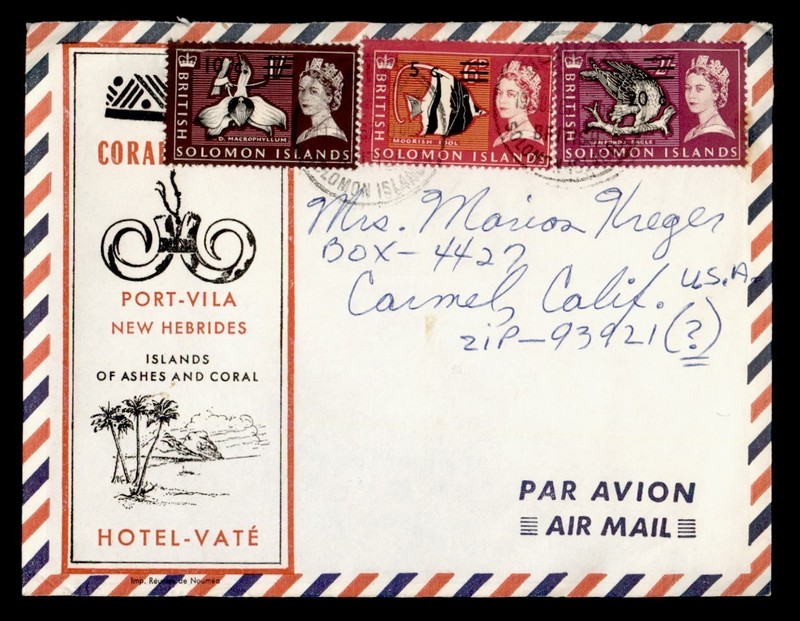 BRITISH
10 1/-
D. MACROPHYLLUM
SOLOMON ISLANDS
BRITISH
5 c
MOORISH IDOL
SOLOMON ISLANDS
BRITISH
2/-
EAGLE
SOLOMON ISLANDS
SOLOMON ISLANDS
CORAI
PORT-VILA
NEW HEBRIDES
ISLANDS
OF ASHES AND CORAL
HOTEL-VATÉ
Imp. Réunies de Nouméa
Mrs. Marion Kreger
BOX-4427
Carmel, Calif. U.S.A.
ZIP-93921(?)
PAR AVION
AIR MAIL